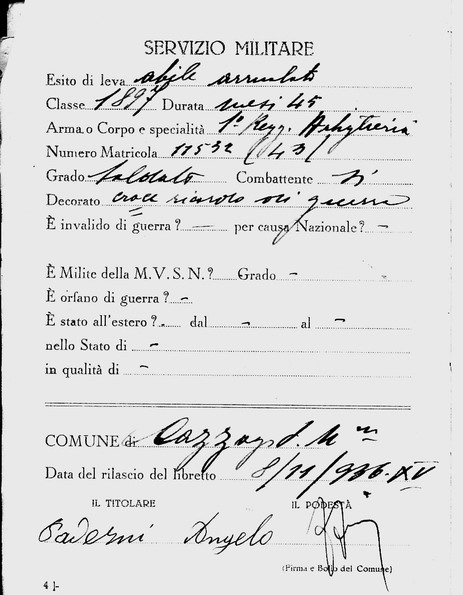 SERVIZIO MILITARE
Esito di leva abile arruolato
Classe 1897 Durata mesi 45
Arma o Corpo e specialità 1° Regg. Artiglieria
Numero Matricola 11532 (43)
Grado Soldato Combattente Sì
Decorato croce ricordo di guerra
È invalido di guerra? — per causa Nazionale? -
È Milite della M.V.S.N.? Grado -
È orfano di guerra? -
È stato all'estero? dal - al -
nello Stato di -
in qualità di -
COMUNE di Cazzago S. M.
Data del rilascio del libretto 8/11/936-XV
IL TITOLARE IL PODESTÀ
Paderni Angelo
(Firma e Bollo del Comune)
4 -